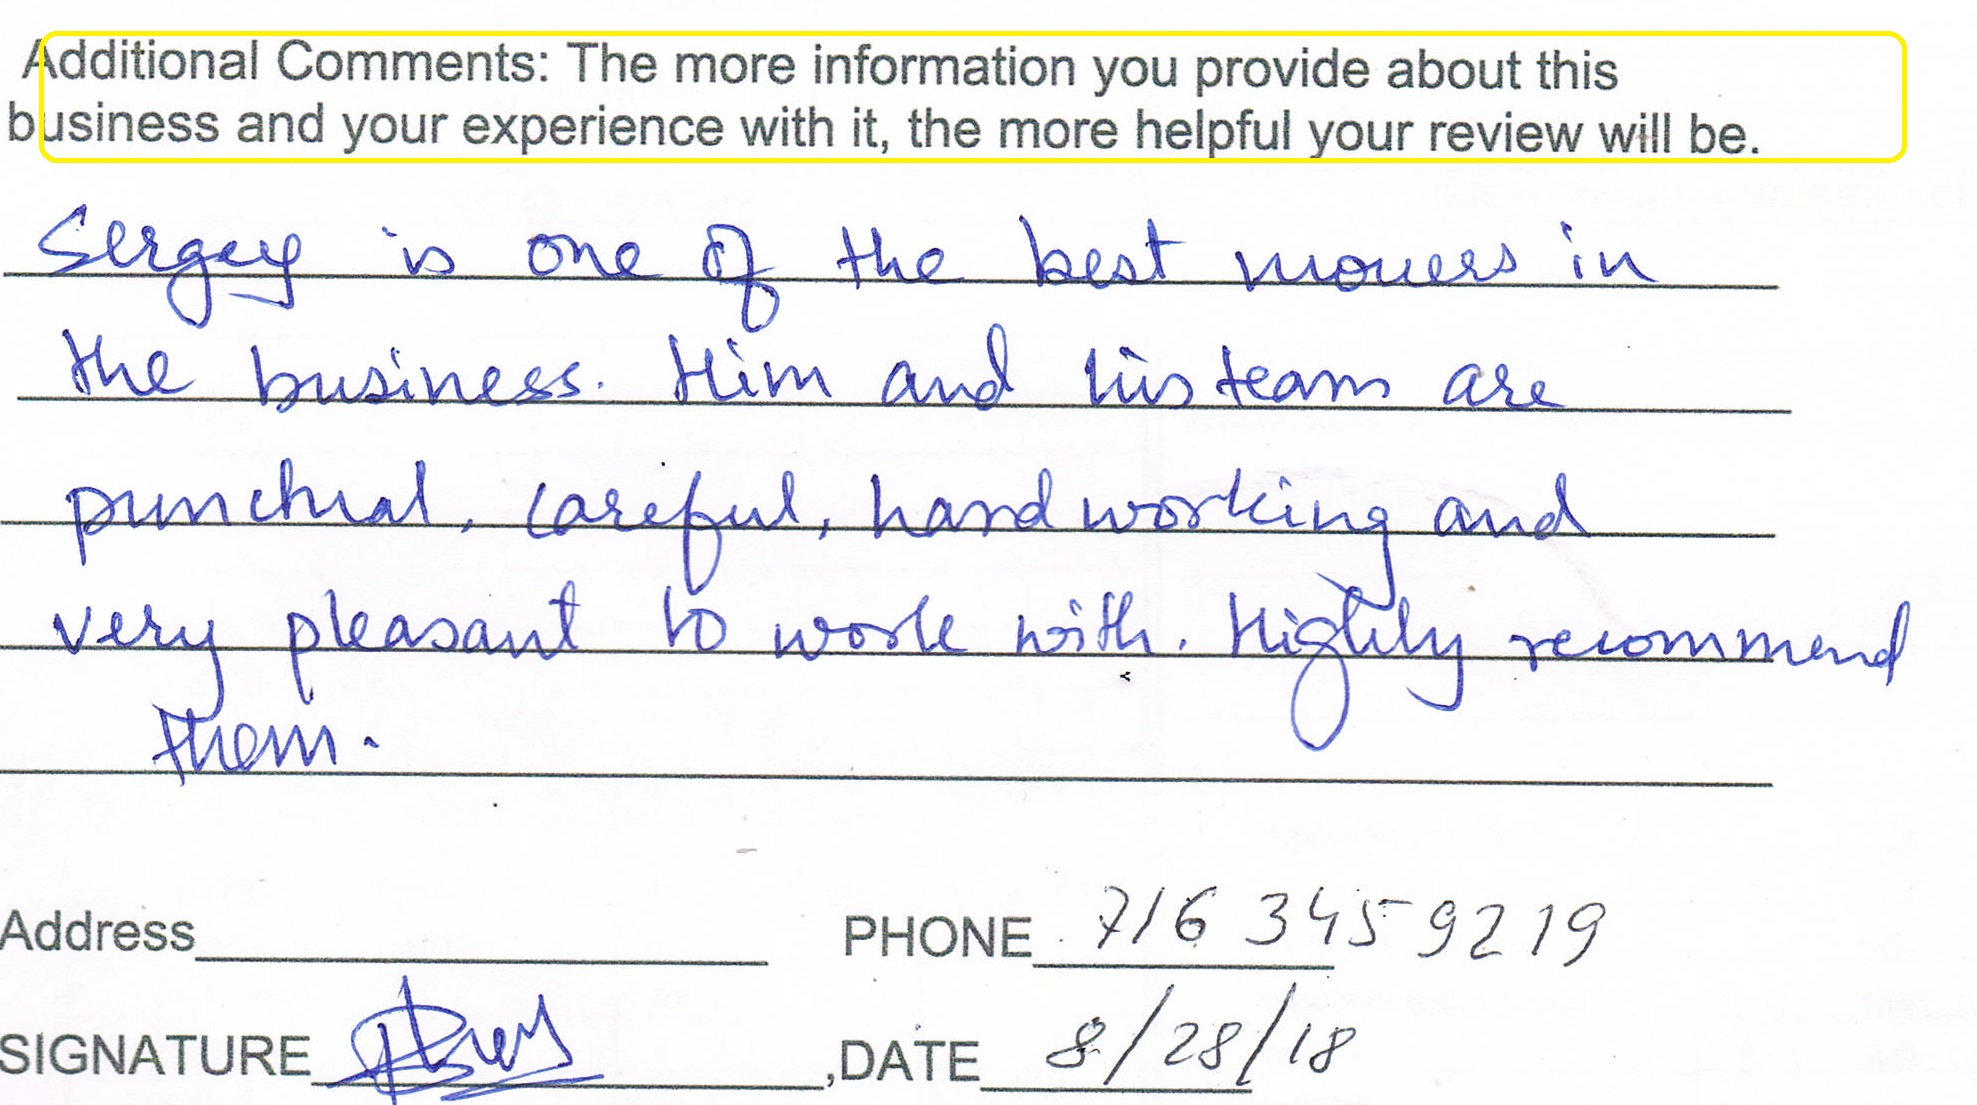 Additional Comments: The more information you provide about this
business and your experience with it, the more helpful your review will be.
Sergey is one of the best movers in
the business. Him and his team are
punctual, careful, hard working and
very pleasant to work with. Highly recommend
them.
Address PHONE 716 345 9219
SIGNATURE ,DATE 8/28/18